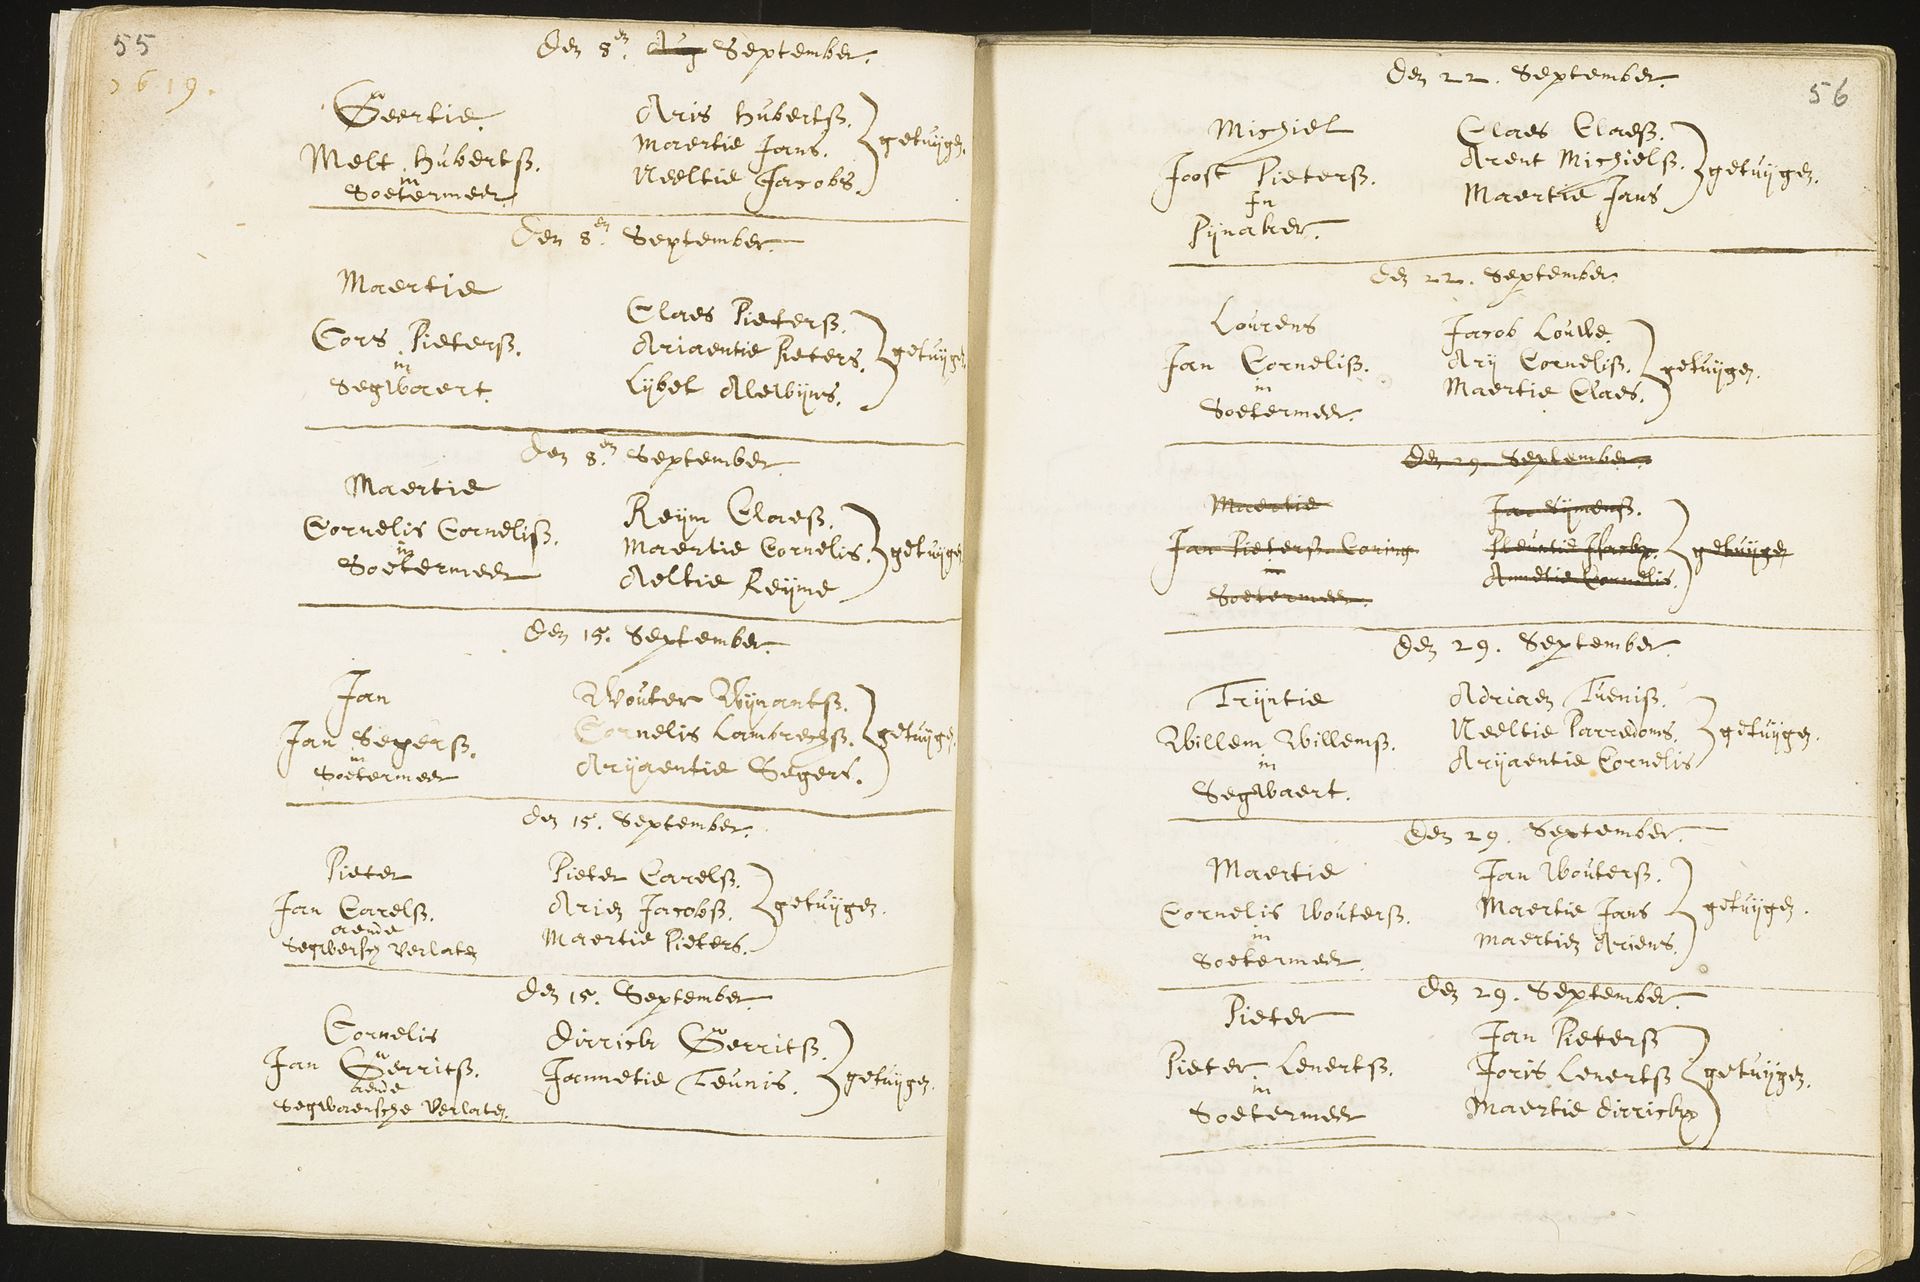 55
1619.
Den 8en Aug September.
Geertie.
Melt Hubertß.
in
Soetermeer
Aris Hubertß.
Maertie Jans.
Neeltie Jacobs.
getuijgen.
Den 8en September.
Maertie
Cors Pieterß.
in
Segwaert.
Claes Pieterß.
Ariaentie Pieters.
Lijbet Alewijns.
getuijgen
Den 8en September
Maertie
Cornelis Cornelisß.
in
Soetermeer
Reijm Claesß.
Maertie Cornelis.
Aeltie Reijme
getuijgen
Den 15. September.
Jan
Jan Segerß.
in
Soetermeer
Wouter Wijnantß.
Cornelis Lambrechß.
Arijaentie Segers.
getuijgen.
Den 15. September.
Pieter
Jan Carelß.
aende
Segwersch Verlaten
Pieter Carelß.
Arien Jacobß.
Maertie Pieters.
getuijgen.
Den 15. September.
Cornelis
Jan Gerritß.
aende
Segwaersche Verlaten.
Dirrick Gerritß.
Jannetie Teunis.
getuijgen.
56
Den 22. September.
Michiel
Joost Pieterß.
In
Pijnaker.
Claes Claesß.
Arent Michielß.
Maertie Jans
getuijgen.
Den 22. September.
Lourens
Jan Cornelisß.
in
Soetermeer.
Jacob Louwe.
Arij Cornelisß.
Maertie Claes.
getuijgen.
Den 29. September.
Maertie
Jan Pieterß. Coring
Soetermeer.
Jan Sijmenß.
Pleuntie
Annetie Cornelis.
getuijgen
Den 29. September.
Trijntie
Willem Willemß.
in
Segwaert.
Adriaen Tuenisß.
Neeltie Parredoms.
Arijaentie Cornelis
getuijgen.
Den 29. September.
Maertie
Cornelis Wouterß.
in
Soetermeer.
Jan Wouterß.
Maertie Jans
Maertien Ariens.
getuijgen.
Den 29. September.
Pieter
Pieter Lenertß.
in
Soetermeer
Jan Pieterß
Joris Lenertß
Maertie Dirrickx
getuijgen.